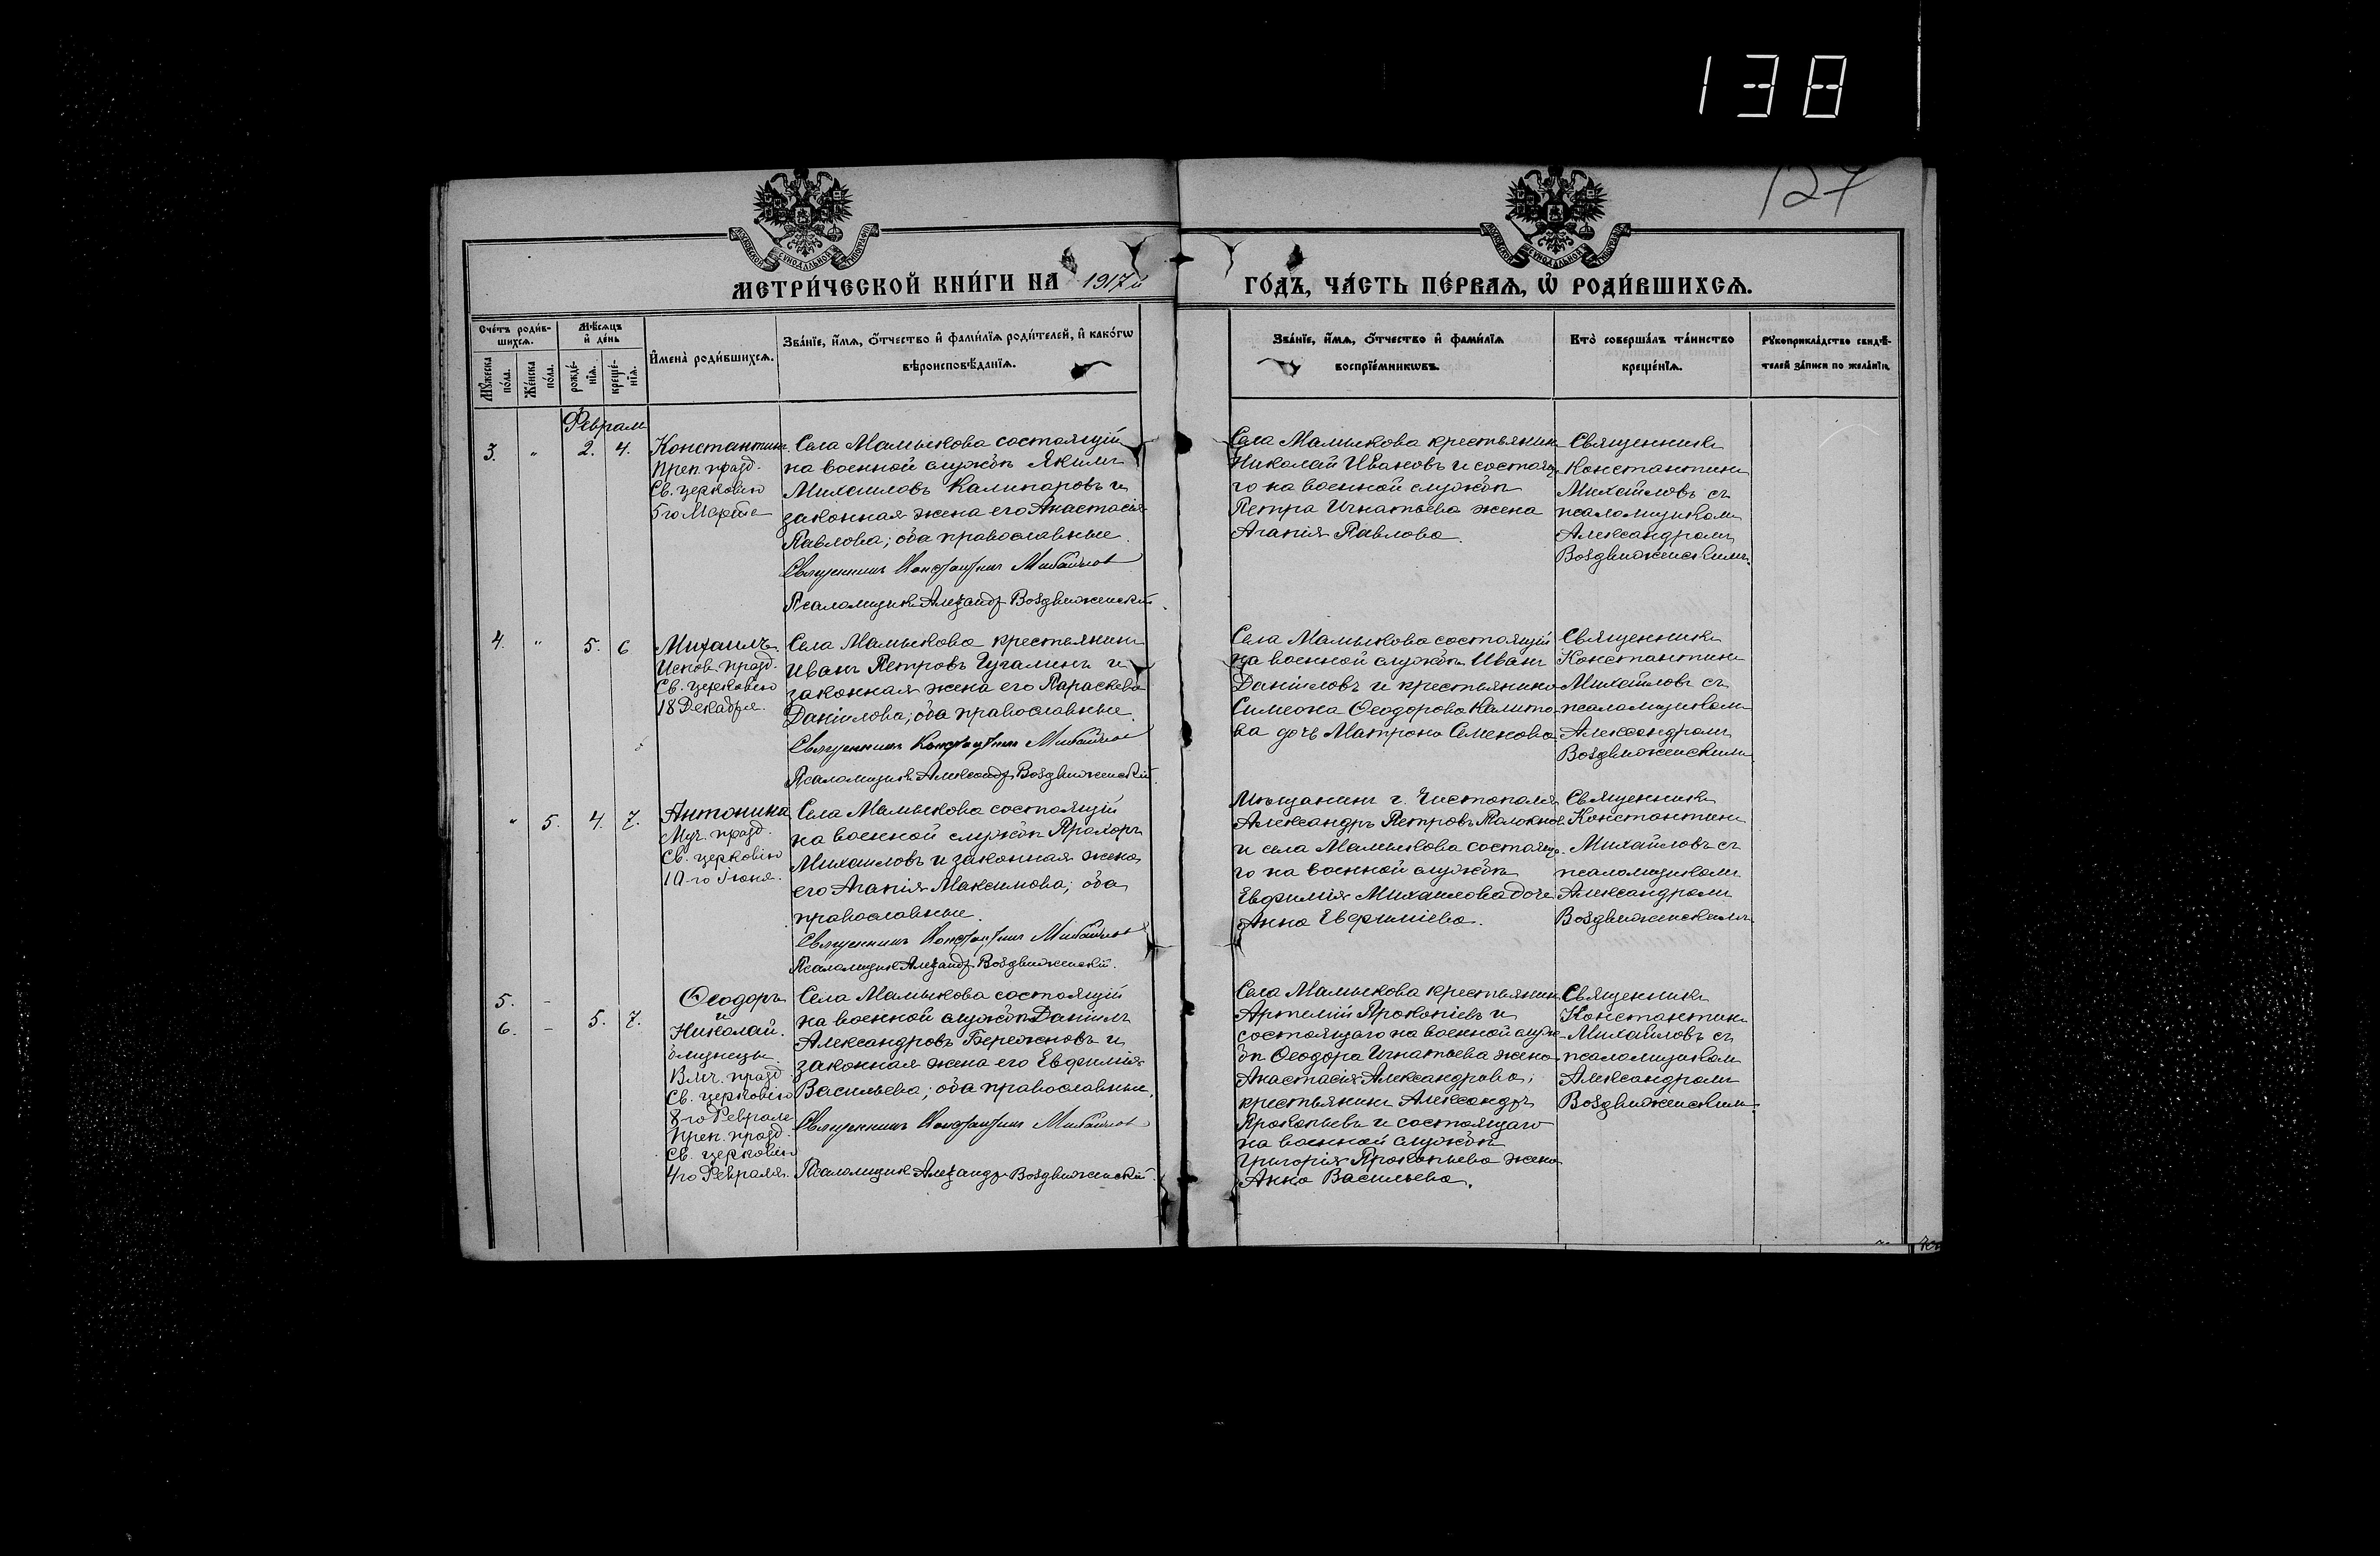 138
127
МОСКОВСКОЙ СѴНОДАЛЬНОЙ ТИПОГРАФІИ
МОСКОВСКОЙ СѴНОДАЛЬНОЙ ТИПОГРАФІИ
МЕТРИ́ЧЕСКОЙ КНИ́ГИ НА 1917 й
ГО́ДЪ, ЧА́СТЬ ПЕ́РВАѦ, Ѡ҆ РОДИ́ВШИХСѦ.
Сче́тъ роди́в-
шихсѧ.
Мꙋ́жеска
по́ла.
Же́нска
по́ла.
Мѣ́сѧцъ
и҆ де́нь
рожде́-
нїѧ.
креще́-
нїѧ.
И҆мена̀ роди́вшихсѧ.
Зва́нїе, и҆́мѧ, ѻ҆́тчество и҆ фами́лїѧ роди́телей, и҆ како́гѡ
вѣроисповѣ́данїѧ.
Зва́нїе, и҆́мѧ, ѻ҆́тчество и҆ фами́лїѧ
воспрїе́мникѡвъ.
Кто̀ соверша́лъ та́инство
креще́нїѧ.
Рꙋкоприкла́дство свидѣ́-
телей за́писи по жела́нїю.
Февраль
3. " 2. 4.
Константинъ.
Преп. празд.
Св. церковію
5 го Марта
Села Мамыкова состоящій
на военной службѣ Якимъ
Михаиловъ Калинаровъ и
законная жена его Анастасія
Павлова; оба православные.
Священникъ Константинъ Михайлов
Псаломщик Александр Воздвиженскій.
Села Мамыкова крестьянин
Николай Ивановъ и состояща-
го на военной службѣ
Петра Игнатьева жена
Агапія Павлова.
Священникъ
Константинъ
Михайловъ съ
псаломщикомъ
Александромъ
Воздвиженскимъ.
4. " 5. 6
Михаилъ.
Испов. празд.
Св. церковію
18 Декабря.
Села Мамыкова крестьянинъ
Иванъ Петровъ Чугалинъ и
законная жена его Параскева
Даніилова; оба православные.
Священникъ Константинъ Михайлов
Псаломщик Александр Воздвиженскій.
Села Мамыкова состоящій
на военной службѣ Иванъ
Даніиловъ и крестьянина
Симеона Ѳеодорова Калито-
ва дочь Матрона Семенова
Священникъ
Константинъ
Михайловъ съ
псаломщикомъ
Александромъ
Воздвиженскимъ
" 5. 4. 7.
Антонина
Муч. празд.
Св. церковію
10-го Іюня.
Села Мамыкова состоящій
на военной службѣ Прохоръ
Михаиловъ и законная жена
его Агапія Максимова; оба
православные.
Священникъ Константинъ Михайлов
Псаломщик Александр Воздвиженскій.
Мѣщанинъ г. Чистополя
Александръ Петровъ
и села Мамыкова состояща-
го на военной службѣ
Евфимія Михаилова дочь
Анна Евфиміева.
Священникъ
Константинъ
Михайловъ съ
псаломщикомъ
Александромъ
Воздвиженскимъ
5. -
6. - 5. 7.
Ѳеодоръ
и
Николай.
близнецы.
Влмч. празд.
Св. церковію
8-го Февраля
Преп. празд.
Св. церковію
4 го Февраля.
Села Мамыкова состоящій
на военной службѣ Даніилъ
Александровъ Бережновъ и
законная жена его Евфимія
Васильева; оба православные.
Священникъ Константинъ Михайлов
Псаломщик Александр Воздвиженскій.
Села Мамыкова крестьянин
Артемій Прокопіевъ и
состоящаго на военной служ-
бѣ Ѳеодора Игнатьева жена
Анастасія Александрова;
крестьянинъ Александръ
Прокопьевъ и состоящаго
на военной службѣ
Григорія Прокопьева жена
Анна Васильева.
Священникъ
Константинъ
Михайловъ съ
псаломщикомъ
Александромъ
Воздвиженскимъ.